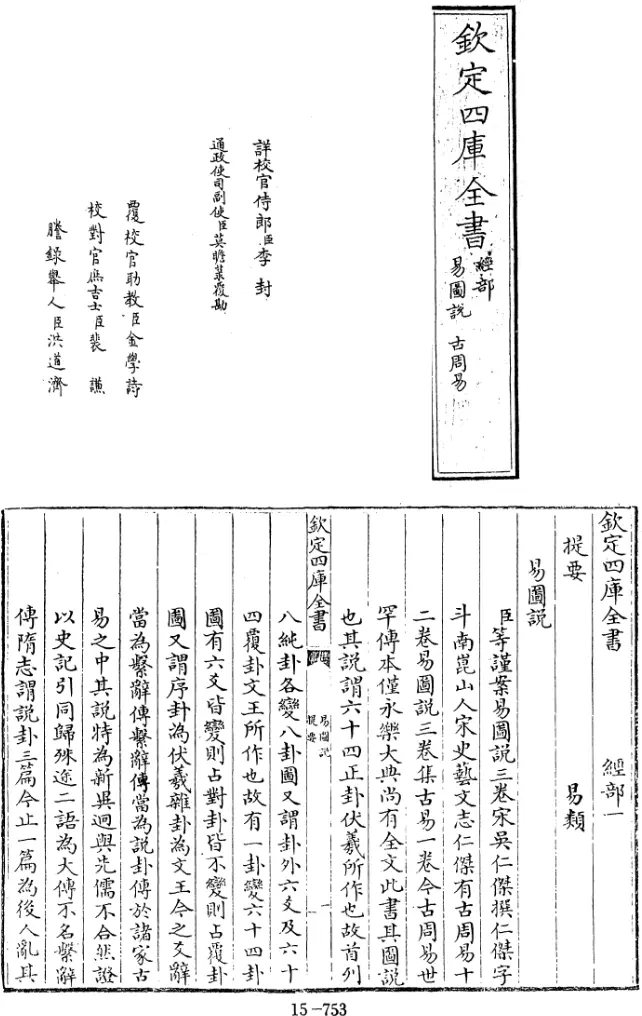 欽定四庫全書
經部
易圖說 古周易
詳校官侍郎臣李封
通政使司副使臣莫瞻菉覆勘
覆校官助教臣金學詩
校對官庶吉士臣裴謙
謄錄舉人臣洪道濟
欽定四庫全書 經部一
提要 易類
易圖說
臣等謹案易圖說三卷宋吳仁傑撰仁傑字
斗南崑山人宋史藝文志仁傑有古周易十
二卷易圖說三卷集古易一卷今古周易世
罕傳本僅永樂大典尚有全文此書其圖說
也其說謂六十四正卦伏羲所作也故首列
欽定四庫全書
易圖說
提要
一
八純卦各變八卦圖又謂卦外六爻及六十
四覆卦文王所作也故有一卦變六十四卦
圖有六爻皆變則占對卦皆不變則占覆卦
圖又謂序卦為伏羲雜卦為文王今之爻辭
當為繫辭傳繫辭傳當為說卦傳於諸家古
易之中其說特為新異迥與先儒不合然證
以史記引同歸殊途二語為大傳不名繫辭
傳隋志謂說卦三篇今止一篇為後人亂其
15-753